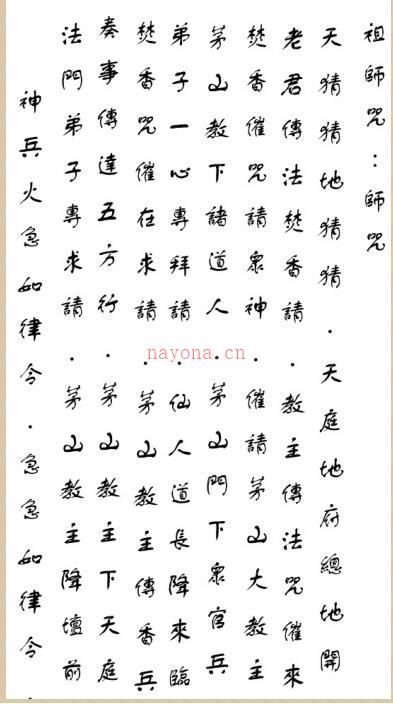 祖師咒：師咒
天猜猜地猜猜．天庭地府總地開
老君傳法焚香請．教主傳法咒催來
焚香催咒請眾神．催請茅山大教主
茅山教下諸道人．茅山門下眾官兵
弟子一心專拜請．仙人道長降來臨
焚香咒催在求請．茅山教主傳香兵
奏事傳達五方行．茅山教主下天庭
法門弟子專求請．茅山教主降壇前
神兵火急如律令．急急如律令．
nayona.cn